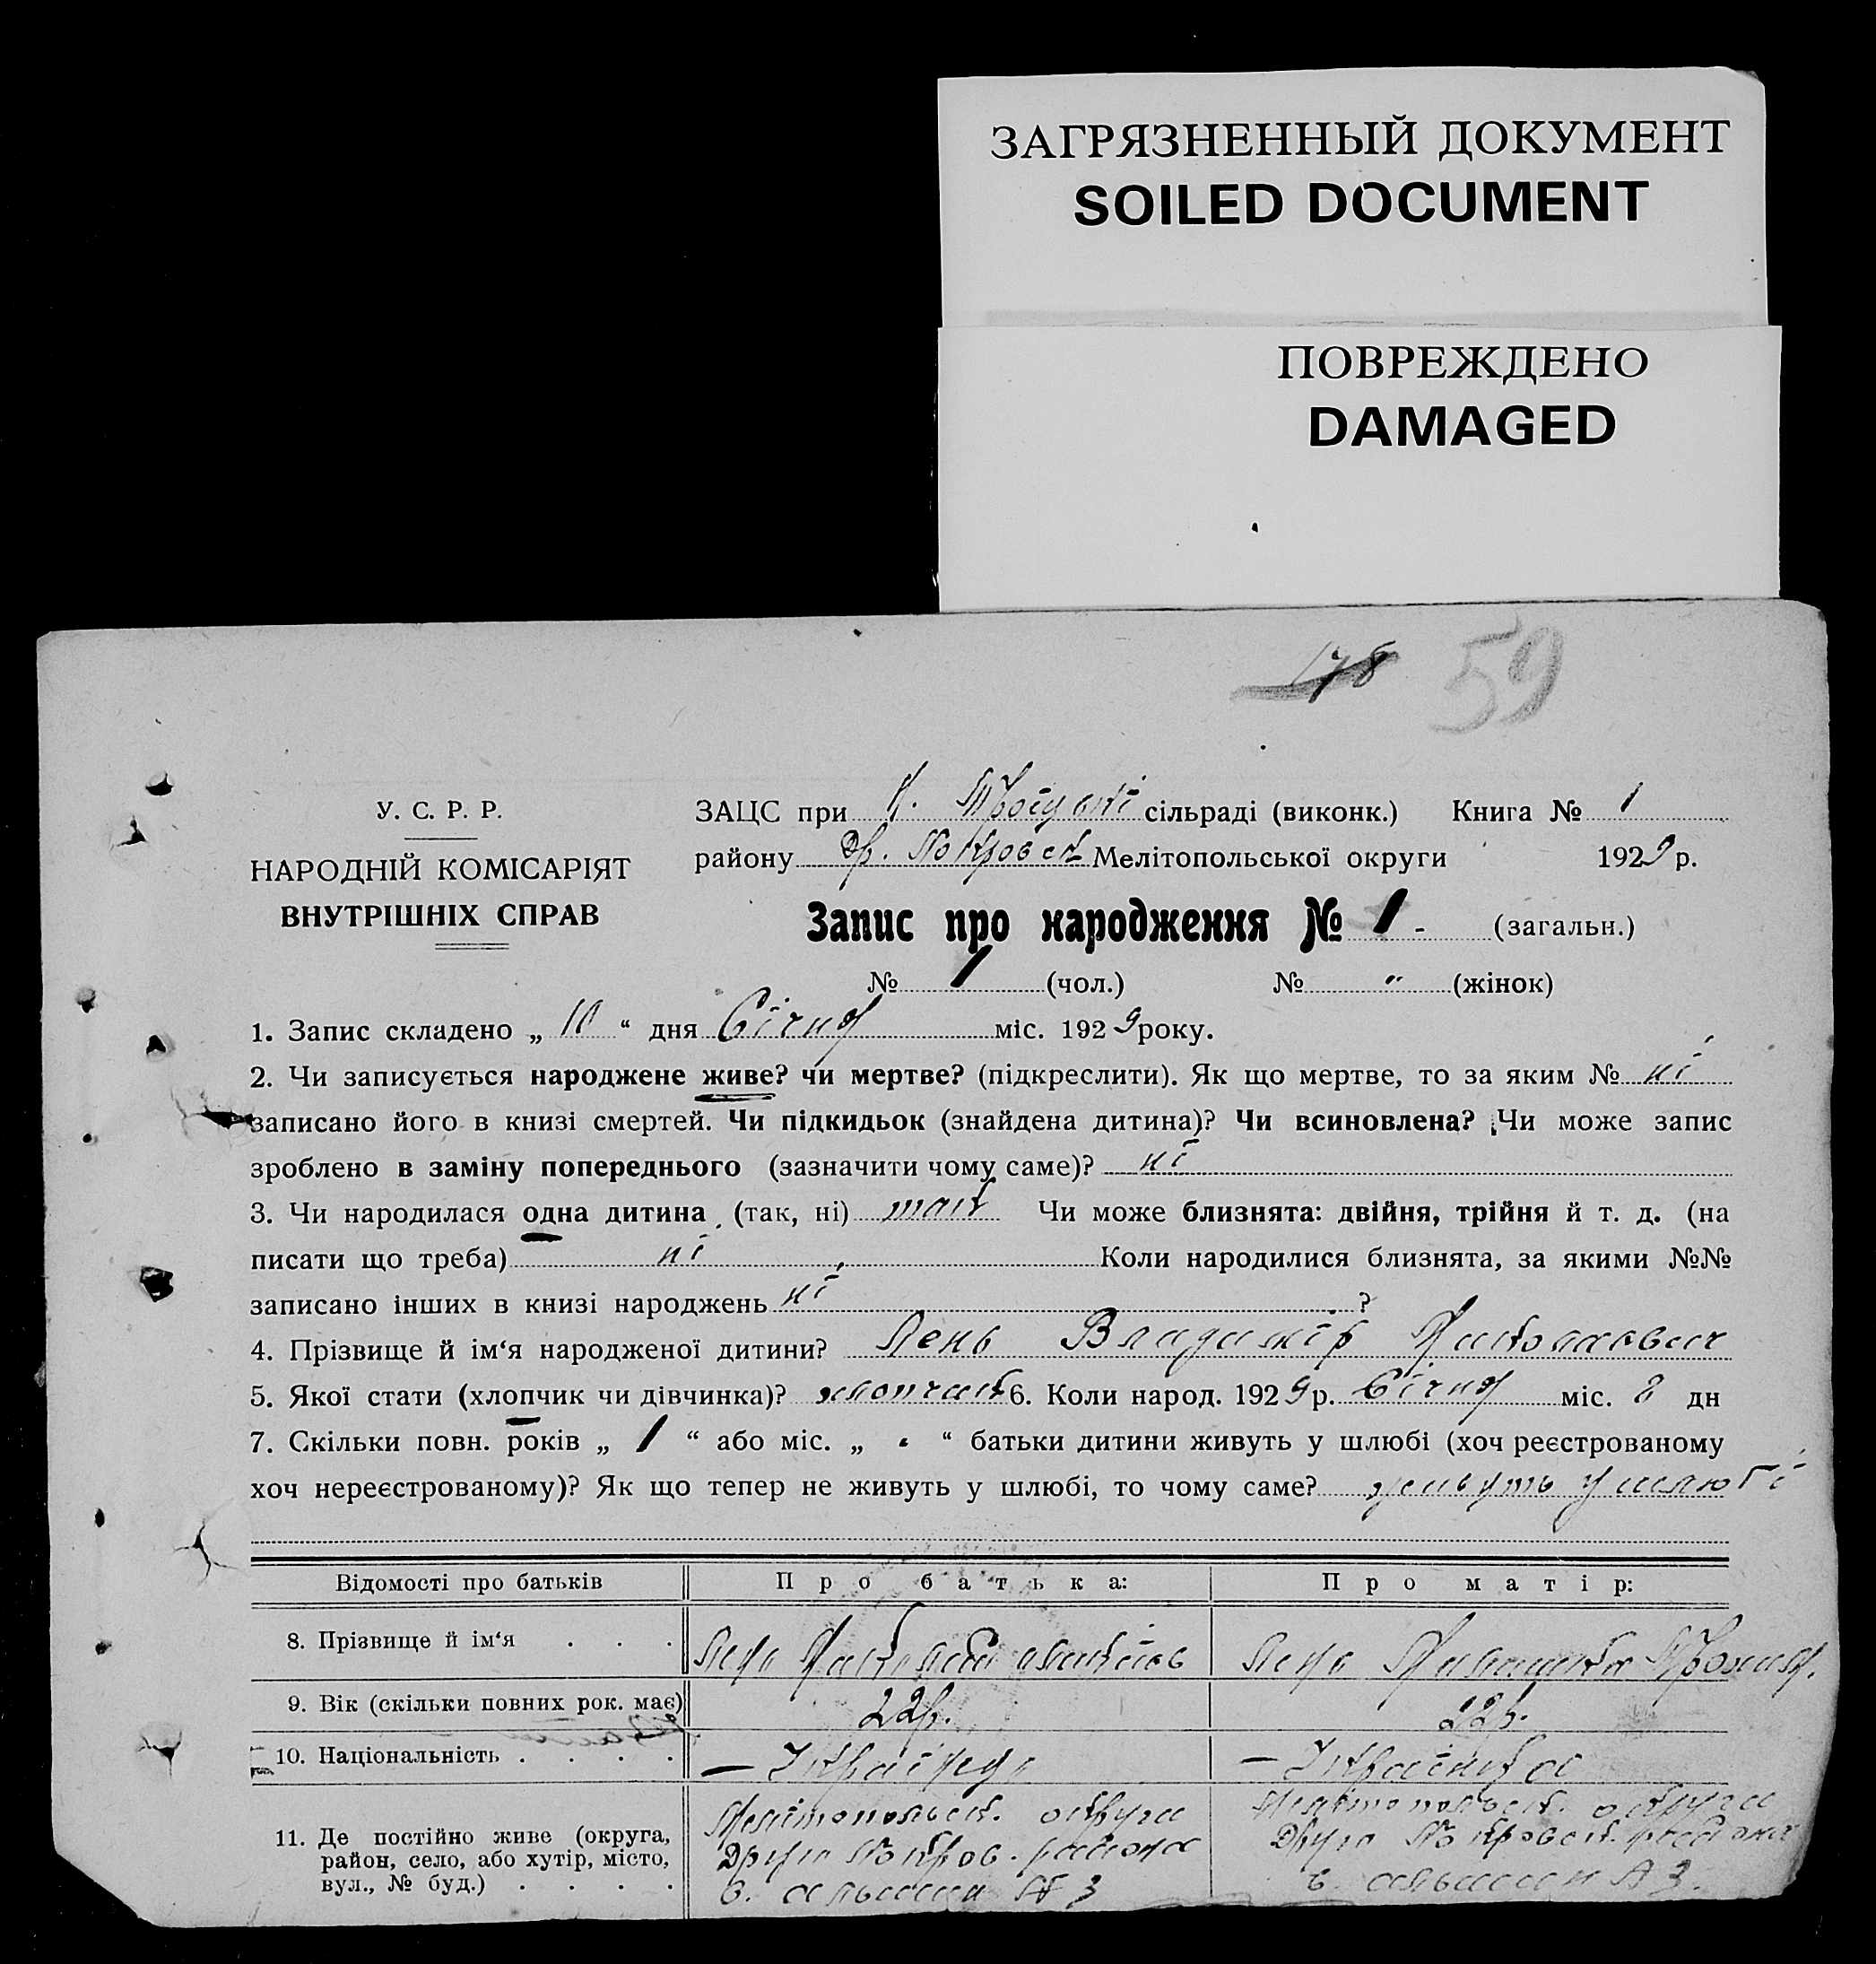 ЗАГРЯЗНЕННЫЙ ДОКУМЕНТ
SOILED DOCUMENT
ПОВРЕЖДЕНО
DAMAGED
178 59
У. С. Р. Р.
НАРОДНІЙ КОМІСАРІЯТ
ВНУТРІШНІХ СПРАВ
ЗАЦС при сільраді (виконк.) Книга № 1
району Др. Покровськ Мелітопольської округи 1929 р.
Запис про народження № 1 - (загальн.)
№ 1 (чол.) № „ (жінок)
1. Запис складено „ 10 “ дня Січня міс. 1929 року.
2. Чи записується народжене живе? чи мертве? (підкреслити). Як що мертве, то за яким № ні
записано його в книзі смертей. Чи підкидьок (знайдена дитина)? Чи всиновлена? Чи може запис
зроблено в заміну попереднього (зазначити чому саме)? ні
3. Чи народилася одна дитина (так, ні) так Чи може близнята: двійня, трійня й т. д. (на
писати що треба) ні Коли народилися близнята, за якими №№
записано інших в книзі народжень ні ?
4. Прізвище й ім‘я народженої дитини? Лень Владимір Миколаєвич
5. Якої стати (хлопчик чи дівчинка)? хлопчик 6. Коли народ. 1929 р. Січня міс. 8 дн
7. Скільки повн. років „ 1 “ або міс. „ “ батьки дитини живуть у шлюбі (хоч реєстрованому
хоч нереєстрованому)? Як що тепер не живуть у шлюбі, то чому саме? живуть у шлюбі
Відомості про батьків Про батька: Про матір:
8. Прізвище й ім‘я . . .
9. Вік (скільки повних рок. має) 22р. 22р.
10. Національність . . . . — Українець — Українка
11. Де постійно живе (округа,
район, село, або хутір, місто,
вул., № буд.) . . . .
Мелітопольськ. округи
Друго Покров. района
№ 3
Мелітопольськ. округи
Друго Покровськ. района
№ 3.